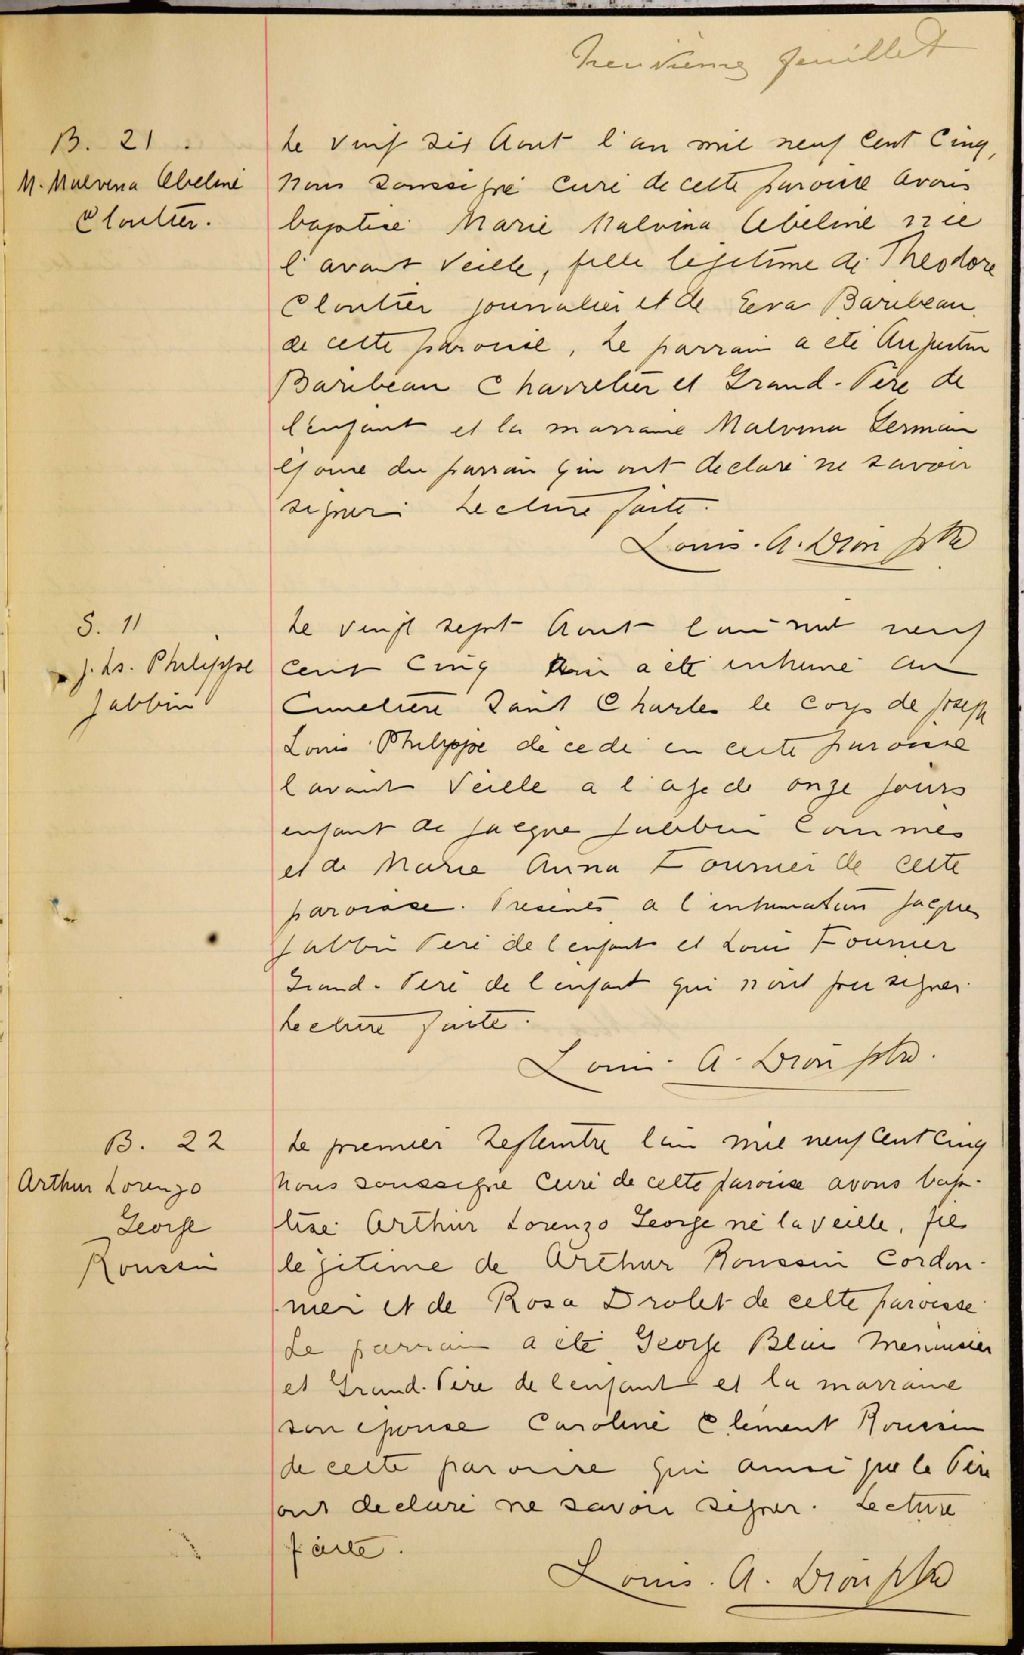 feuillet
B. 21.
M. Malvina Abeline
Cloutier.
Le vingt six Aout l'an mil neuf cent cinq,
nous soussigné curé de cette paroisse avons
baptisé Marie Malvina Abeline née
l'avant veille, fille légitime de Theodore
Cloutier journalier et de Eva Baribeau
de cette paroisse, Le parrain a été Augustin
Baribeau Charretier et Grand-Père de
l'enfant et la marraine Malvina Germain
épouse du parrain qui ont déclaré ne savoir
signer. Lecture faite.
Louis. A. Dion ptre
S. 11
J. Ls. Philippe
Jabbin
Le vingt sept Aout l'an mil neuf
cent cinq a été inhumé au
Cimetière Saint Charles le corps de Joseph
Louis Philippe décédé en cette paroisse
l'avant veille a l'age de onze jours
enfant de Jacque Jabbin Commis
et de Marie Anna Fournier de cette
paroisse. Présents a l'inhumation Jacques
Jabbin Père de l'enfant et Louis Fournier
Grand-Père de l'enfant qui n'ont pu signer.
Lecture faite.
Louis. A. Dion ptre.
B. 22
Arthur Lorenzo
George
Roussin
Le premier Septembre l'an mil neuf cent cinq
Nous soussigné curé de cette paroisse avons bap-
tisé Arthur Lorenzo George né la veille, fils
légitime de Arthur Roussin Cordon-
nier et de Rosa Drolet de cette paroisse.
Le parrain a été George Blais Menuisier
et Grand-Père de l'enfant et la marraine
son épouse Caroline Clément Roussin
de cette paroisse qui ainsi que le Père
ont déclaré ne savoir signer. Lecture
faite.
Louis. A. Dion ptre